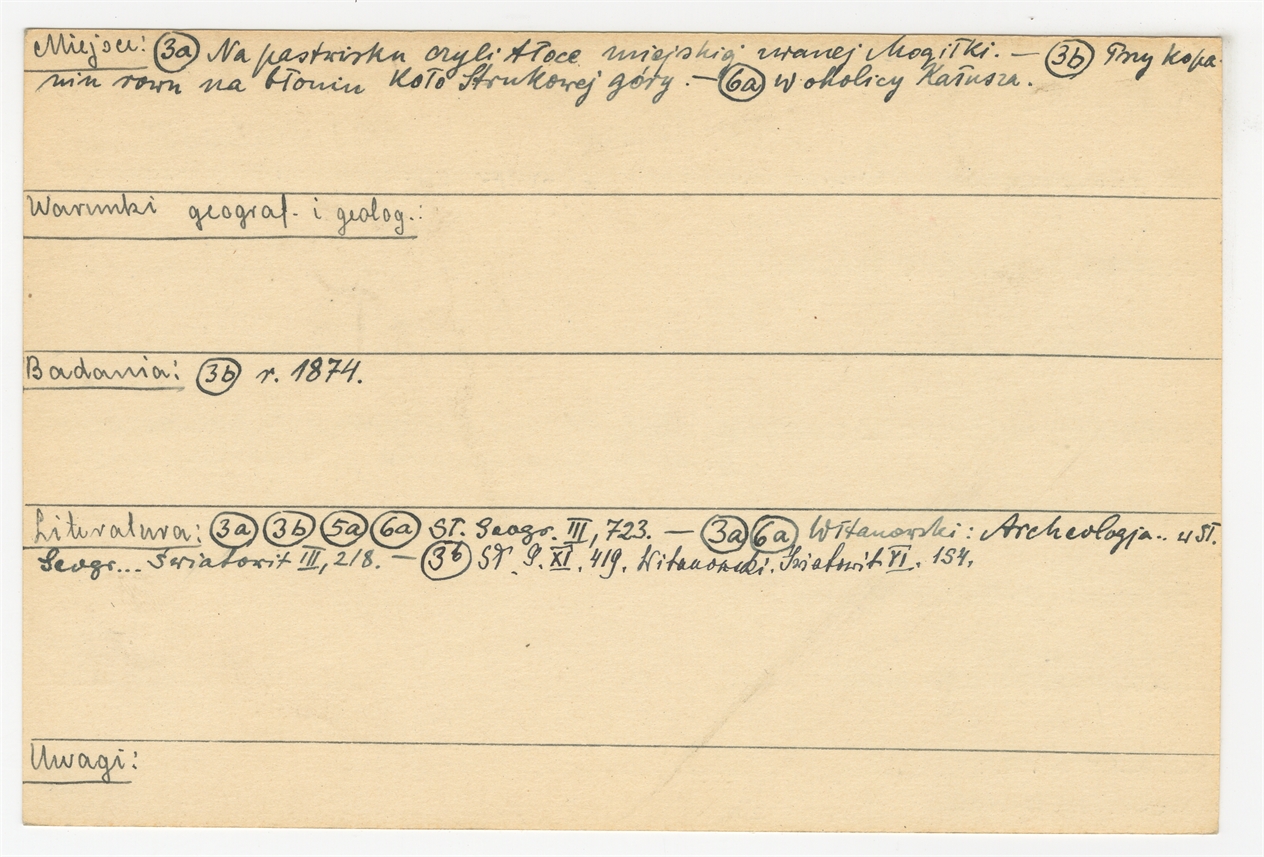 Miejsce: 3a Na pastwisku czyli tłoce miejskiej zwanej Mogiłki. — 3b Przy kopa-
niu rowu na błoniu koło Strukowej góry. — 6a W okolicy Kałusza.
Warunki geograf. i geolog.:
Badania: 3b r. 1874.
Literatura: 3a 3b 5a 6a Sł. Geogr. III, 723. — 3a 6a Witanowski: Archeologja.. w Sł.
Geogr... Światowit III, 218. — 3b Sł. G. XI. 419. Witanowski. Światowit VI. 154.
Uwagi: